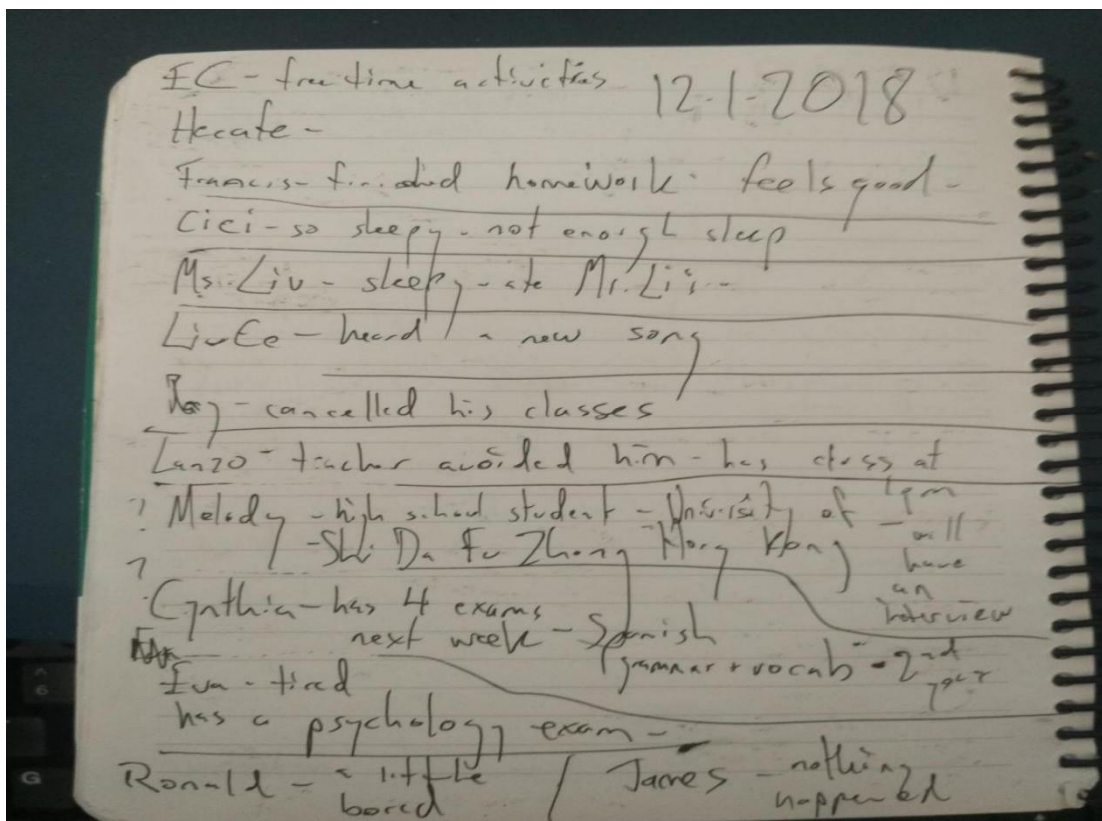 EC - free time activities 12-1-2018
Hecate -
Francis - finished homework. feels good -
Cici - so sleepy - not enough sleep
Ms. Liu - sleepy - ate
heard a new song
- cancelled his classes
Lanzo - teacher avoided him - has class at
? Melody - high school student - University of 1pm
- Shi Da Fu Zhong Hong Kong will
? have
an
Cynthia - has 4 exams interview
next week - Spanish
grammar + vocab - 2nd
year
Eva - tired
has a psychology exam -
Ronald - a little / James - nothing
bored happened